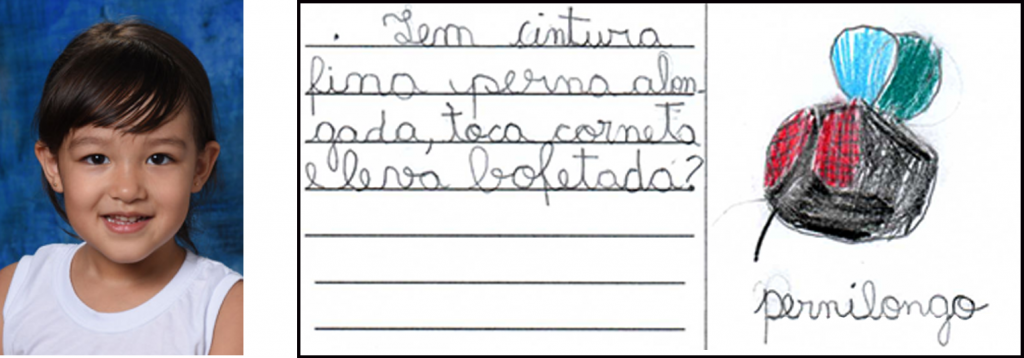 . Tem cintura
fina, perna alon-
gada, toca corneta
e leva bofetada?
pernilongo